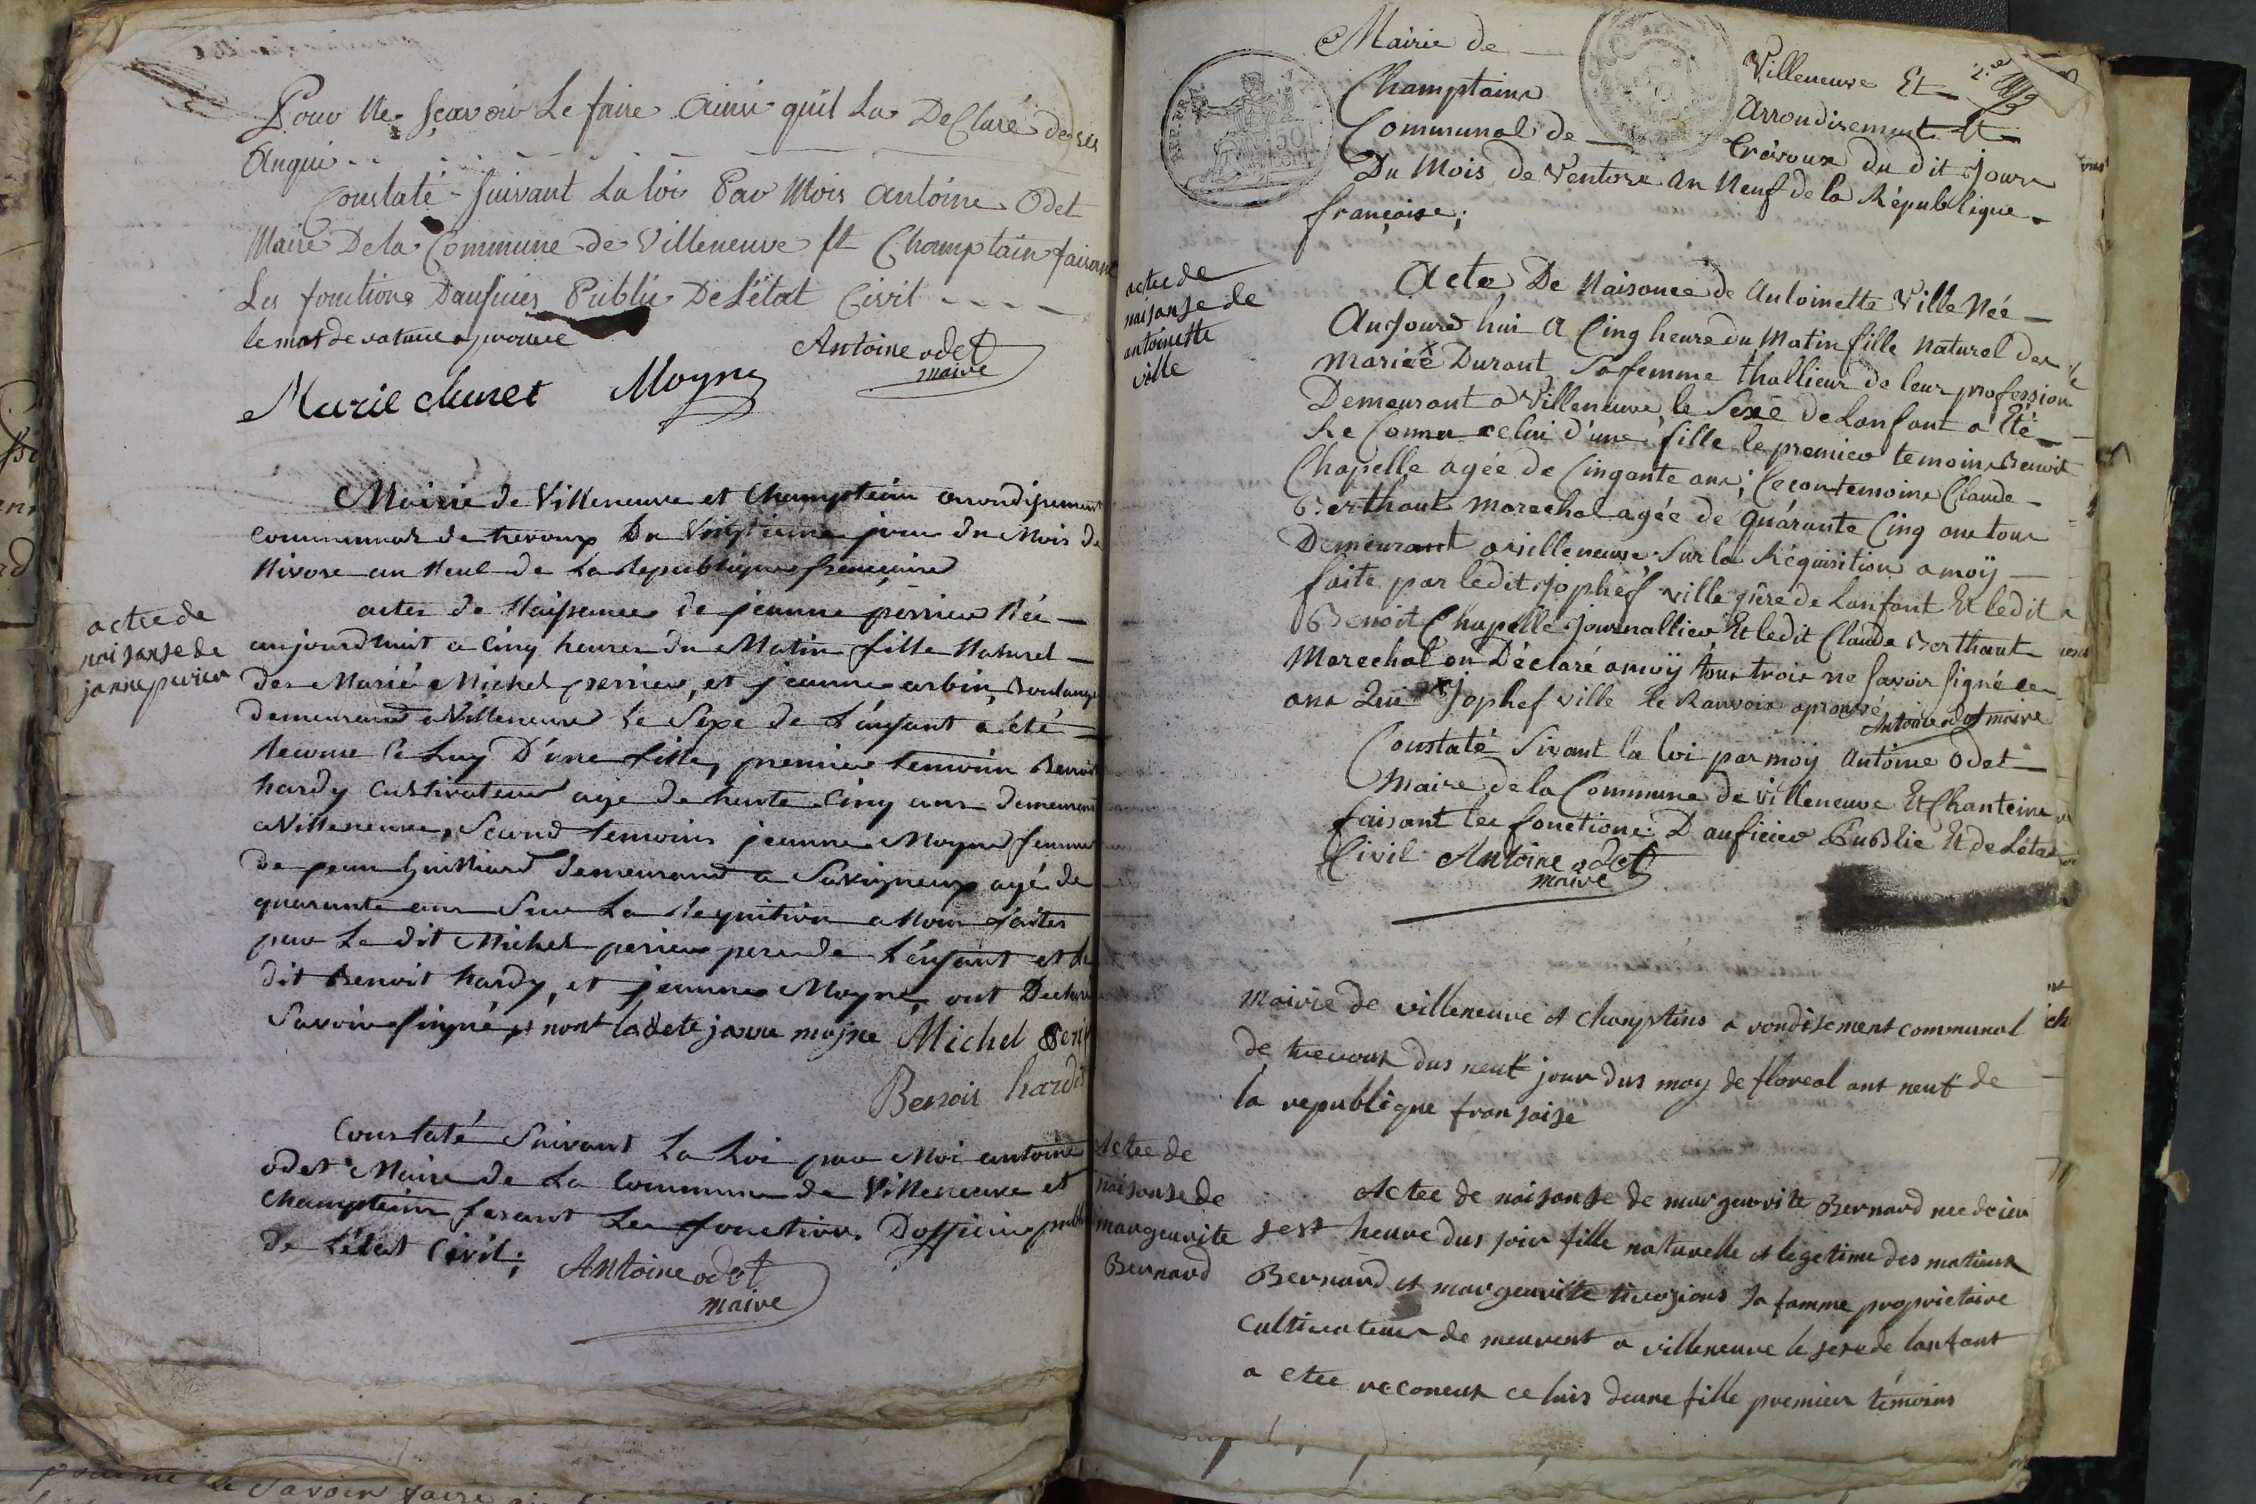 Pour Ne sçavoir Le faire Ainsi quil La DeClaré de ses
Anqui
Constaté Suivant La loi Par Mois Antoine Odet
Maire De la Commune de Villeneuve Et Champtain faisant
Les fonctions Daufisier Public De L'état Civil
le mot de nature aprouvé
Antoine odet
maire
Marie clunet Moyne
Mairie de Villeneuve et Champtein arrondisement
communal de trevoux Du Vingtieme jour du Mois de
Nivose an Neuf de La Republique francaise
acte de
naisanse de
janne perier
actes de Naissance de jeanne perrier Née
aujourdhuit a Cinq heures du Matin fille Naturel
des Marié Michel perrier, et jeanne arbin, Boulanger
demeurand a Villeneuve le Sexe de L'enfant a été
Reconue Ce Luy D'une fille, premier temoin Benoit
hardy Cultivateur agé de trente Cinq ans demeurant
a Villeneuve, Second temoins jeanne Moyne femme
de jean Guilliard demeurand a Savigneux agé de
quarante ans Sur La Requition a Nous faites
par Le dit Michel perier pere de L'enfant et le
dit Benoit hardy, et jeanne Moyne, ont Declaré
Savoir signé et nont ladete janne mojne Michel Perie
Benois hardi
Constaté Suivant La Loi par Moi antoine
odet Maire de La Commune de Villeneuve et
Champtein fesant Les fonction Dofficier public
de L'état Civil;
Antoine odet
maire
Mairie de Villeneuve Et
Champtain Arrondisement
Communal de Trévoux du dit jour
Du Mois de Ventose An Neuf de la République
française;
actede
naisanse de
antoinette
ville
Acte De Naisance de Antoinette Ville Née
Aujourd hui A Cinq heure du Matin fille Naturel des
Mariée Durant Sa femme thallieur de leur profession
Demeurant a Villeneuve, le Sexe de Lanfant a Eté
Reconnu celui d'une fille le premier temoins Benoit
Chapelle agée de Cinqante ans; Secon temoins Claude
Berthaut marechal agée de quarante Cinq ans tous
Demeurant a villeneuve, Sur la Réquisition a moÿ
faite par ledit Jophef ville père de Lanfant Et ledit
Benoit Chapelle journallier Et ledit Claude Berthaut
Marechal on Déclaré a moÿ tous trois ne savoir signé ce
ans Qui Jophef ville le Ranvoix aprouvé
Antoine odet maire
Constaté Sivant la loi par moÿ Antoine Odet
Maire de la Commune de villeneuve Et Chanteins
faisant les fonctions D'auficier Public Et de L'éta
Civil Antoine odet
maire
Mairie de villeneuve et chanptins a rondisement communal
de trevoux dus neuf jour dus moy de floreal ant neuf de
la republique fransaise
Actee de
naisanse de
margeurite
Bernard
Actee de naisanse de margeurite Bernard nee
sest heure dus soir fille naturelle et legetime des matieux
Bernard et margeurite sa famme proprietaire
Cultivateur de meurent a villeneuve le sexe de lanfant
a etee reconeux ce luis deune fille premier temoins